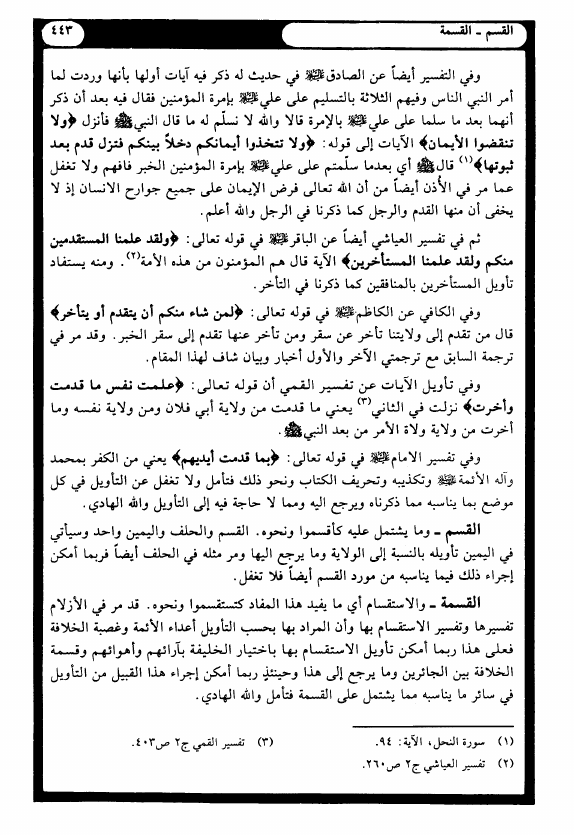 القسم ـ القسمة
٤٤٣
وفي التفسير أيضاً عن الصادقﷺ في حديث له ذكر فيه آيات أولها بأنها وردت لما
أمر النبي الناس وفيهم الثلاثة بالتسليم على علي بإمرة المؤمنين فقال فيه بعد أن ذكر
أنهما بعد ما سلما على علي بالإمرة قالا والله لا نسلّم له ما قال النبيﷺ فأنزل ﴿ولا
تنقضوا الأيمان﴾ الآيات إلى قوله: ﴿ولا تتخذوا أيمانكم دخلاً بينكم فتزل قدم بعد
ثبوتها﴾(١) قالﷺ أي بعدما سلّمتم على علي بإمرة المؤمنين الخبر فافهم ولا تغفل
عما مر في الأُذن أيضاً من أن الله تعالى فرض الإيمان على جميع جوارح الانسان إذ لا
يخفى أن منها القدم والرجل كما ذكرنا في الرجل والله أعلم.
ثم في تفسير العياشي أيضاً عن الباقر في قوله تعالى: ﴿ولقد علمنا المستقدمين
منكم ولقد علمنا المستأخرين﴾ الآية قال هم المؤمنون من هذه الأمة(٢). ومنه يستفاد
تأويل المستأخرين بالمنافقين كما ذكرنا في التأخر.
وفي الكافي عن الكاظم في قوله تعالى: ﴿لمن شاء منكم أن يتقدم أو يتأخر﴾
قال من تقدم إلى ولايتنا تأخر عن سقر ومن تأخر عنها تقدم إلى سقر الخبر. وقد مر في
ترجمة السابق مع ترجمتي الآخر والأول أخبار وبيان شاف لهذا المقام.
وفي تأويل الآيات عن تفسير القمي أن قوله تعالى: ﴿علمت نفس ما قدمت
وأخرت﴾ نزلت في الثاني(٣) يعني ما قدمت من ولاية أبي فلان ومن ولاية نفسه وما
أخرت من ولاية ولاة الأمر من بعد النبيﷺ.
وفي تفسير الامام في قوله تعالى: ﴿بما قدمت أيديهم﴾ يعني من الكفر بمحمد
وآله الأئمة وتكذيبه وتحريف الكتاب ونحو ذلك فتأمل ولا تغفل عن التأويل في كل
موضع بما يناسبه مما ذكرناه ويرجع اليه ومما لا حاجة فيه إلى التأويل والله الهادي.
القسم ـ وما يشتمل عليه كأقسموا ونحوه. القسم والحلف واليمين واحد وسيأتي
في اليمين تأويله بالنسبة إلى الولاية وما يرجع اليها ومر مثله في الحلف أيضاً فربما أمكن
إجراء ذلك فيما يناسبه من مورد القسم أيضاً فلا تغفل.
القسمة ـ والاستقسام أي ما يفيد هذا المفاد كتستقسموا ونحوه. قد مر في الأزلام
تفسيرها وتفسير الاستقسام بها وأن المراد بها بحسب التأويل أعداء الأئمة وغصبة الخلافة
فعلى هذا ربما أمكن تأويل الاستقسام بها باختيار الخليفة بآرائهم وأهوائهم وقسمة
الخلافة بين الجائرين وما يرجع إلى هذا وحينئذٍ ربما أمكن إجراء هذا القبيل من التأويل
في سائر ما يناسبه مما يشتمل على القسمة فتأمل والله الهادي.
(١) سورة النحل، الآية: ٩٤.
(٢) تفسير العياشي ج٢ ص٢٦٠.
(٣) تفسير القمي ج٢ ص٤٠٣.